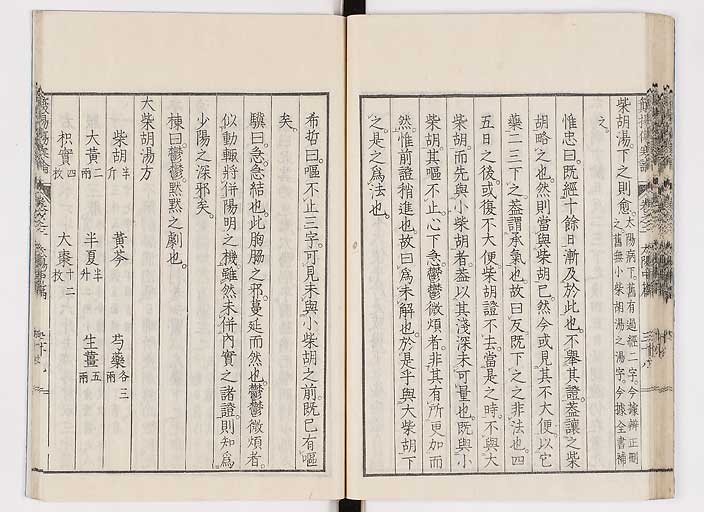 柴胡湯。下之則愈。太陽病下。舊有過經二字。今據辨正刪
之。舊無小柴胡湯之湯字。今據全書補
之。
惟忠曰。既經十餘日。漸及於此也。不擧其證。蓋讓之柴
胡略之也。然則當與柴胡已。然今或見其不大便。以它
藥二三下之。蓋謂承氣也。故曰反既下之。之非法也。四
五日之後。或復不大便。柴胡證不去。當是之時。不與大
柴胡。而先與小柴胡者。蓋以其淺深未可量也。既與小
柴胡。其嘔不止。心下急。鬱鬱微煩者。非其有所更加而
然。惟前證稍進也。故曰爲未解也。於是乎與大柴胡下
之。是之爲法也。
希哲曰。嘔不止三字。可見未與小柴胡之前。既已有嘔
矣。
驥曰。急。急結也。此胸脇之邪。蔓延而然也。鬱鬱微煩者。
似動輒將併陽明之機。雖然未併內實之諸證。則知爲
少陽之深邪矣。
棟曰。鬱鬱。默默之劇也。
大柴胡湯方
柴胡半斤 黃芩 芍藥各三兩
大黃二兩 半夏半升 生薑五兩
枳實四枚 大棗十二枚